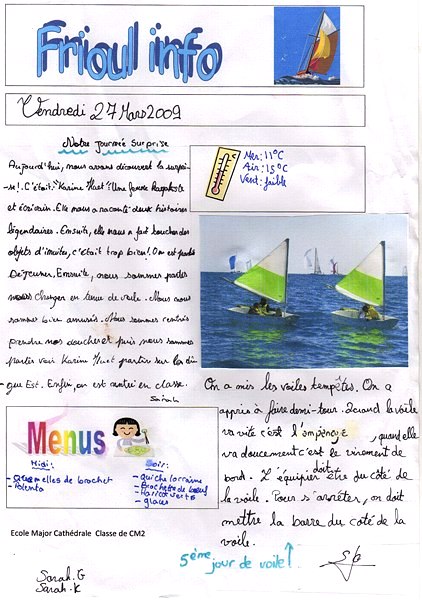 Frioul info
Vendredi 27 Mars 2009
Notre journée surprise
Aujourd'hui, nous avons découvert la surpri-
se! C'était: "Karine Huet"! Une femme
et écrivain. Elle nous a raconté deux histoires
légendaires. Ensuite, elle nous a fait toucher des
objets d'inuites, c'était trop bien! On est partis
Déjeuner. Ensuite, nous sommes partis
nous changer en tenue de voile. Nous nous
sommes bien amusés. Nous sommes rentrés
prendre nos douches et puis nous sommes
partis voir Karine Huet partir sur la di-
gue Est. Enfin, on est rentré en classe.
Sarah
Mer: 11°C
Air: 15°C
Vent: faible
On a mis les voiles tempêtes. On a
appris à faire demi-tour. Quand la voile
va vite c'est l'empanage, quand elle
va doucement c'est le virement de
bord. L'équipier doit être du côté de
la voile. Pour s'arrêter, on doit
mettre la barre du côté de la
voile.
Menus
Midi:
- Quenelles de brochet
- Polenta
Soir:
- Quiche lorraine
- Brochette de bœuf
- Haricot verts
- glaces
Ecole Major Cathédrale Classe de CM2
5ème jour de voile
Sarah.G
Sarah.K